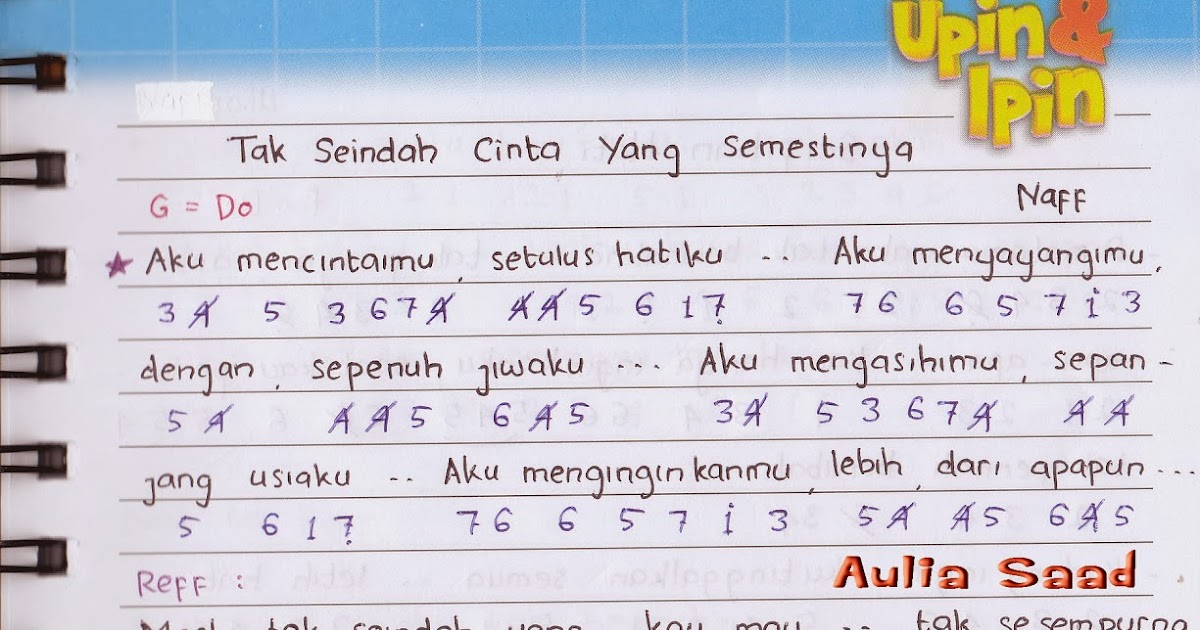 Upin &
Ipin
Tak Seindah Cinta Yang Semestinya
G = Do
Naff
★ Aku mencintaimu, setulus hatiku ... Aku menyayangimu,
3 4̸ 5 3 6 7 4̸ 4̸ 4̸ 5 6 1 7̣ 7 6 6 5 7 i 3
dengan, sepenuh jiwaku .... Aku mengasihimu, sepan -
5 4̸ 4̸ 4̸ 5 6 4̸ 5 3 4̸ 5 3 6 7 4̸ 4̸ 4̸
jang usiaku .. Aku menginginkanmu, lebih, dari apapun ...
5 6 1 7̣ 7 6 6 5 7 i 3 5 4̸ 4̸ 5 6 4̸ 5
Reff :
Aulia Saad
tak seindah yang kau mau ... tak sesempurna